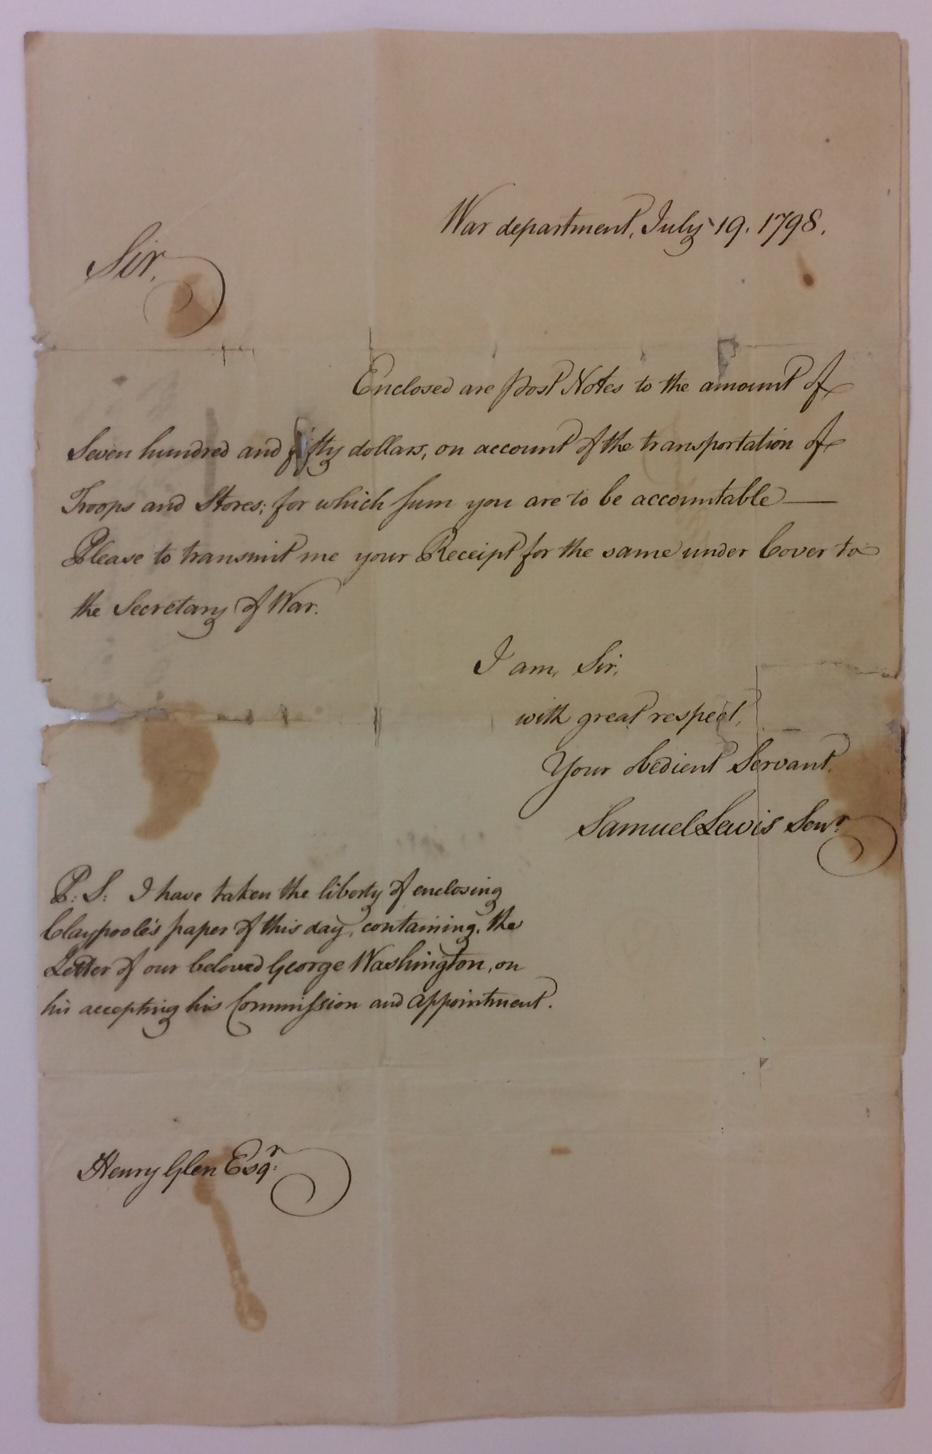 War department, July 19. 1798.
Sir,
Enclosed are Post Notes to the amount of
Seven hundred and fifty dollars, on account of the transportation of
Troops and Stores; for which sum you are to be accountable —
Please to transmit me your Receipt for the same under Cover to
the Secretary of War.
I am, Sir,
with great respect,
Your obedient Servant.
Samuel Lewis Senr
P. S. I have taken the liberty of enclosing
Claypoole's paper of this day, containing, the
Letter of our beloved George Washington, on
his accepting his Commission and Appointment.
Henry Glen Esqr